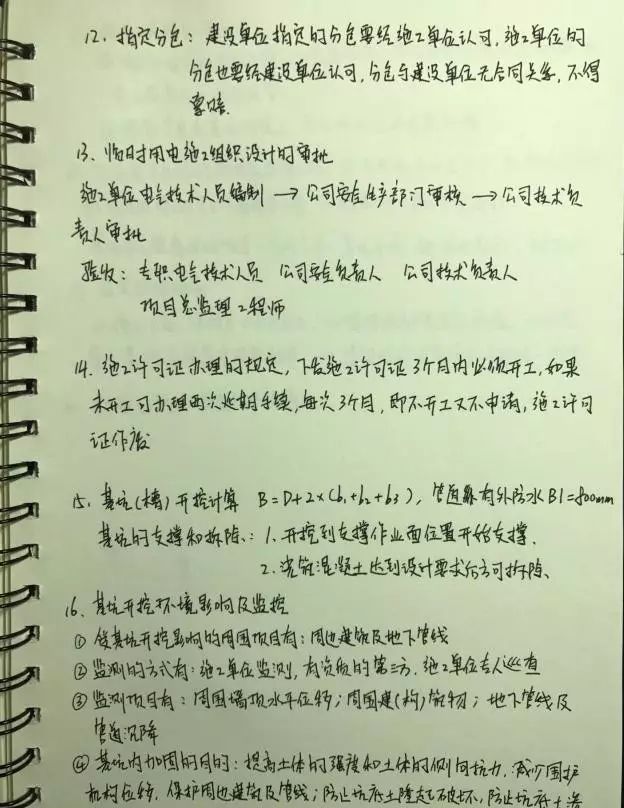 12. 指定分包：建设单位指定的分包要经施工单位认可，施工单位的
分包也要经建设单位认可，分包与建设单位无合同关系，不得
索赔.
13、临时用电施工组织设计的审批
施工单位电气技术人员编制 → 公司安全生产部门审核 → 公司技术负
责人审批
验收：专职电气技术人员 公司安全负责人 公司技术负责人
项目总监理工程师
14. 施工许可证办理的规定，下发施工许可证3个月内必须开工，如果
未开工可办理两次延期手续，每次3个月，即不开工又不申请，施工许可
证作废
15、基坑(槽)开挖计算 B=D+2×(b1+b2+b3)，管道有外防水B1=800mm
基坑的支撑和拆除：1. 开挖到支撑作业面位置开始支撑.
2. 浇筑混凝土达到设计要求后方可拆除、
16、基坑开挖环境影响及监控
① 受基坑开挖影响的周围项目有：周边建筑及地下管线
② 监测的方式有：施工单位监测，有资质的第三方，施工单位专人巡查
③ 监测项目有：周围墙顶水平位移；周围建(构)筑物；地下管线及
管道沉降
④ 基坑内加固的目的：提高土体的强度和土体的侧向抗力，减少围护
机构位移，保护周边建筑及管线；防止坑底土隆起破坏，防止坑底土渗